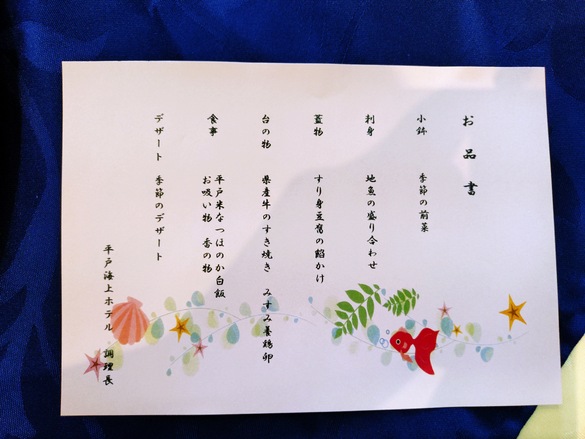 お品書
小鉢 季節の前菜
刺身 地魚の盛り合わせ
蓋物 すり身豆腐の餡かけ
台の物 県産牛のすき焼き みすみ養鶏卵
食事 平戸米なつほのか白飯
お吸い物 香の物
デザート 季節のデザート
平戸海上ホテル 調理長